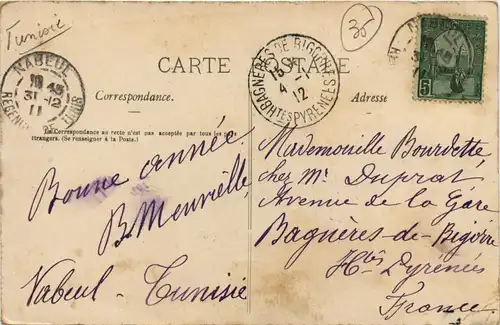 Tunisie
35
NABEUL
18 45
31-12
11
CARTE POSTALE
BAGNÈRES DE BIGORRE
4 - 1
12
HTES PYRENEES
5
Correspondance.
Adresse
La Correspondance au recto n'est pas acceptée par tous les pays
étrangers. (Se renseigner à la Poste.)
Bonne année.
B. Meurville
Nabeul - Tunisie
Mademoiselle Bourdette
chez Mr Duprat
Avenue de la Gare
Bagnères-de-Bigorre
Htes Pyrénées
France